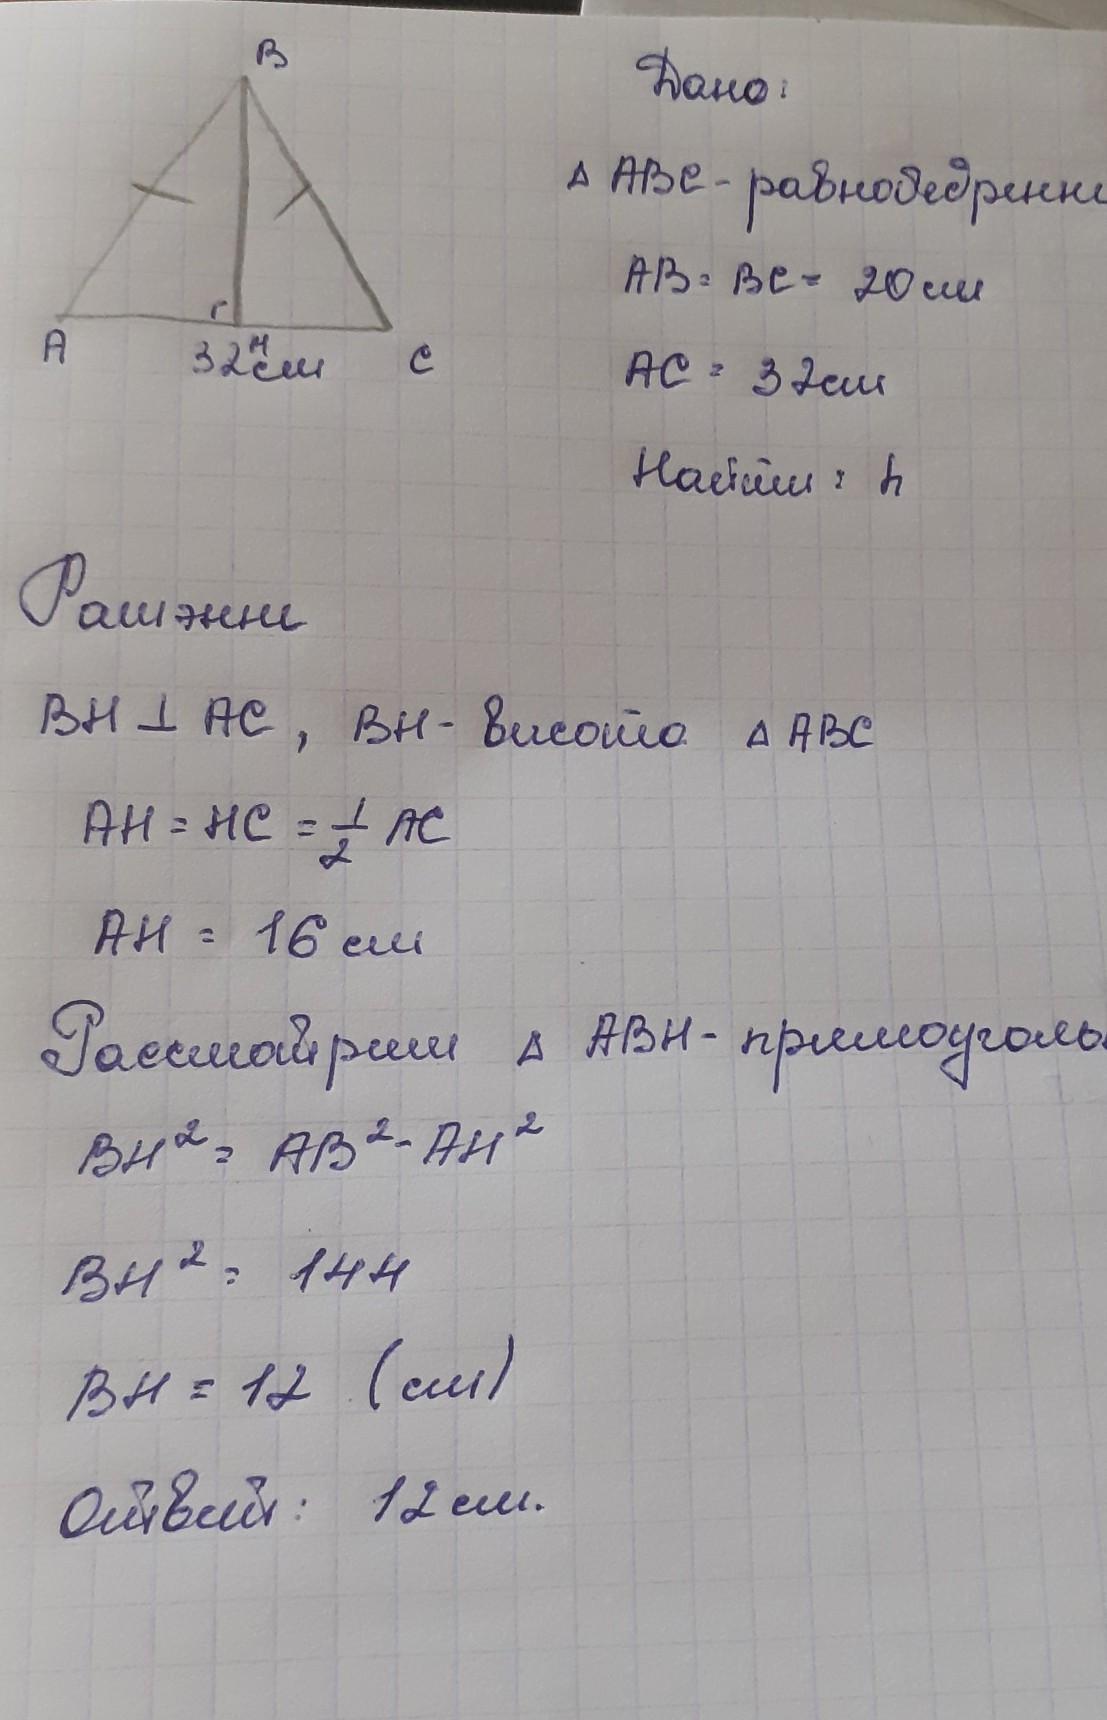 B
A
H
C
32 см
Дано:
△ ABC - равнобедренн
AB = BC = 20 см
AC = 32 см
Найти: h
Рашэнне
BH ⊥ AC, BH - висота △ ABC
AH = HC = 1/2 AC
AH = 16 см
Рассмотрим △ ABH - прямоуголь
BH² = AB² - AH²
BH² = 144
BH = 12 (см)
Ответ: 12 см.